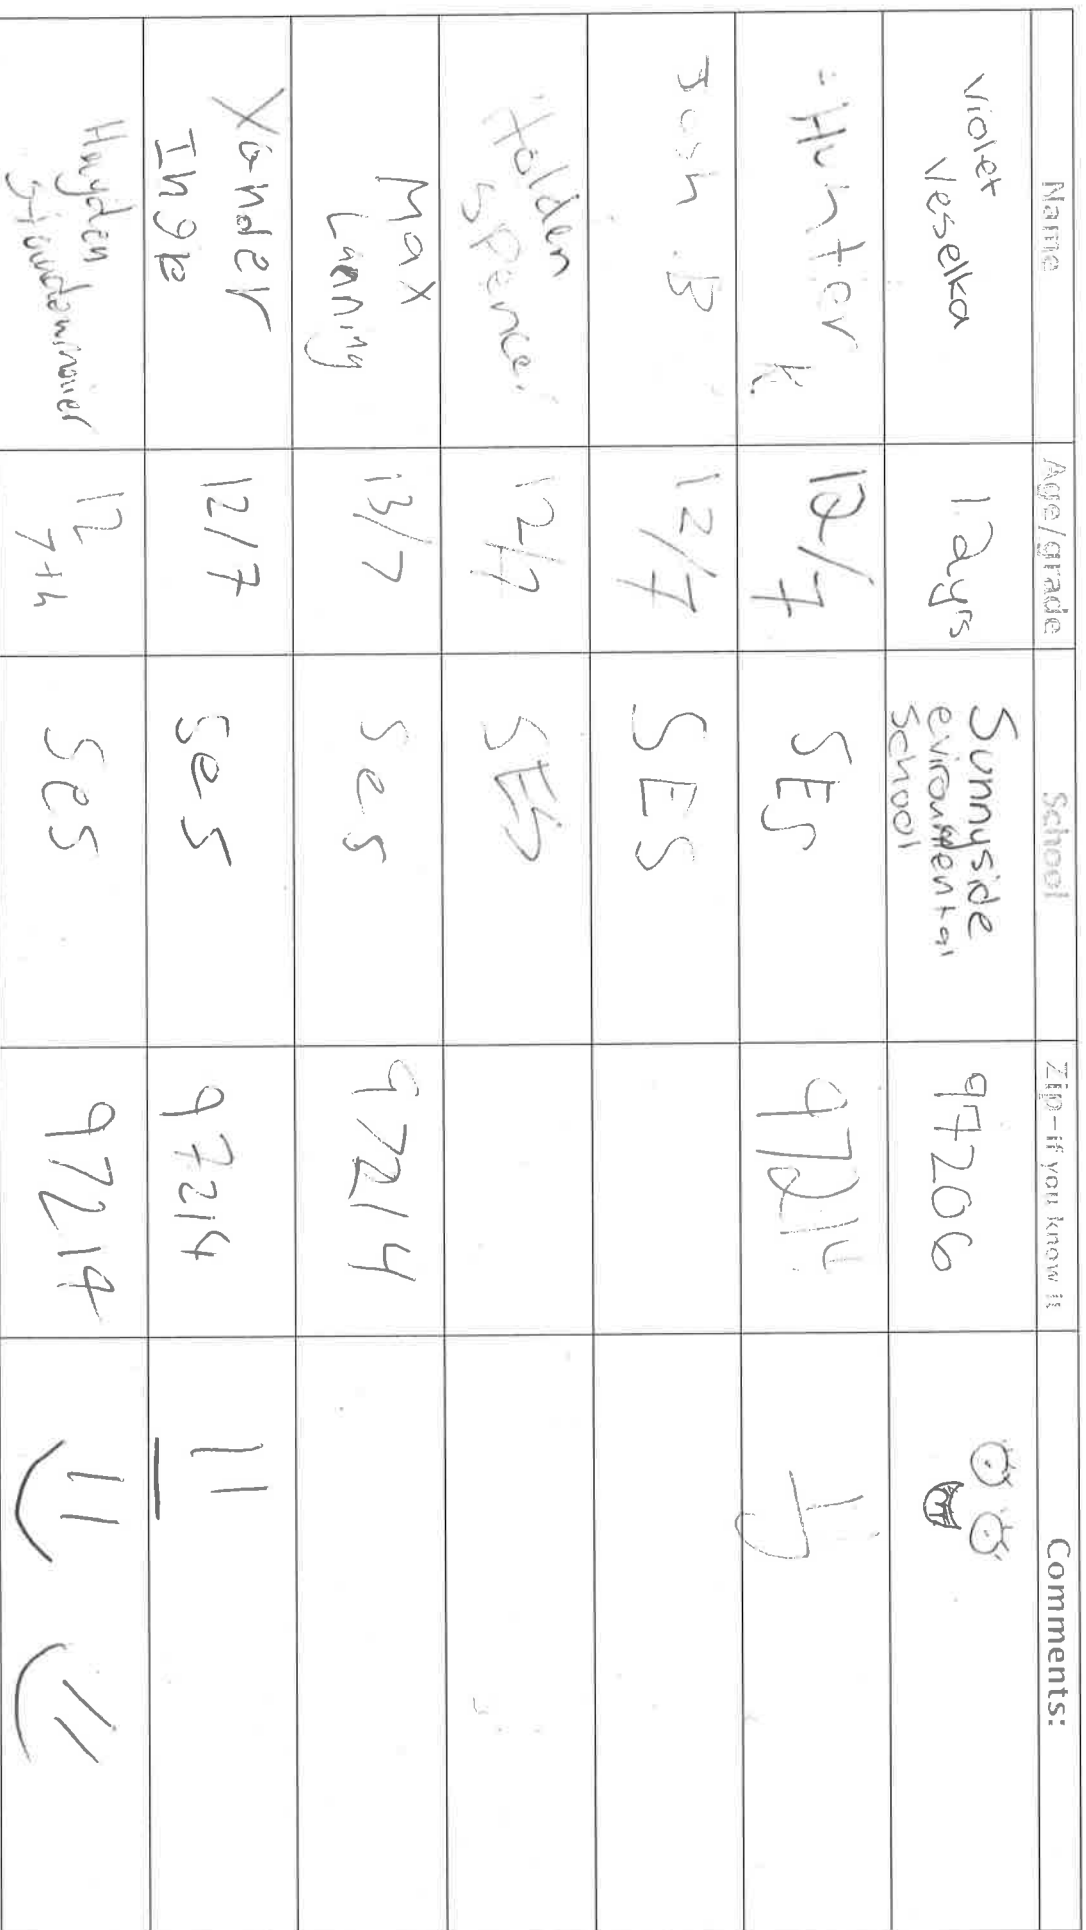 Name Age/grade School Zip-if you know it Comments:
Violet
Vesselka
12 y's
Sunnyside
evironmental
School
97206
Hunter
K.
12/7
SES
97214
Josh .B
12/7
SES
Holden
Spence
12/7
SES
Max
Lanning
13/7
Ses
97214
Xander
Inge
12/7
Ses
97214
Hayden
12
7th
Ses
97214